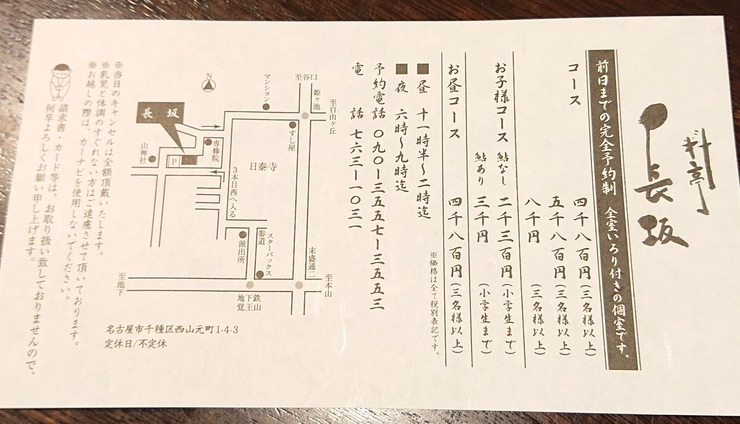 料亭
長坂
前日までの完全予約制 全室いろり付きの個室です。
コース
四千八百円(三名様以上)
五千八百円(三名様以上)
八千円(三名様以上)
お子様コース 鮎なし 二千三百円(小学生まで)
鮎あり 三千円(小学生まで)
お昼コース 四千八百円(三名様以上)
※価格は全て税別表記です。
■昼 十一時半〜二時迄
■夜 六時〜九時迄
予約電話 〇九〇ー三五五七ー三五五三
電話 七六三ー一〇三一
N
至谷口
姫ヶ池
至自由ヶ丘
マンション
すし屋
長坂
専修院
P
山神社
日泰寺
3本目西へ入る
スターバックス
参道
派出所
末盛通二
至本山
至池下
地下鉄
覚王山
名古屋市千種区西山元町1-4-3
定休日/不定休
※当日のキャンセルは全額頂戴いたします。
※乳児と体調のすぐれない方はご遠慮させて頂いております。
※お越しの際は、カーナビを使用しないでください。
請求書・カード等は、お取り扱い致しておりませんので、
何卒よろしくお願い申し上げます。